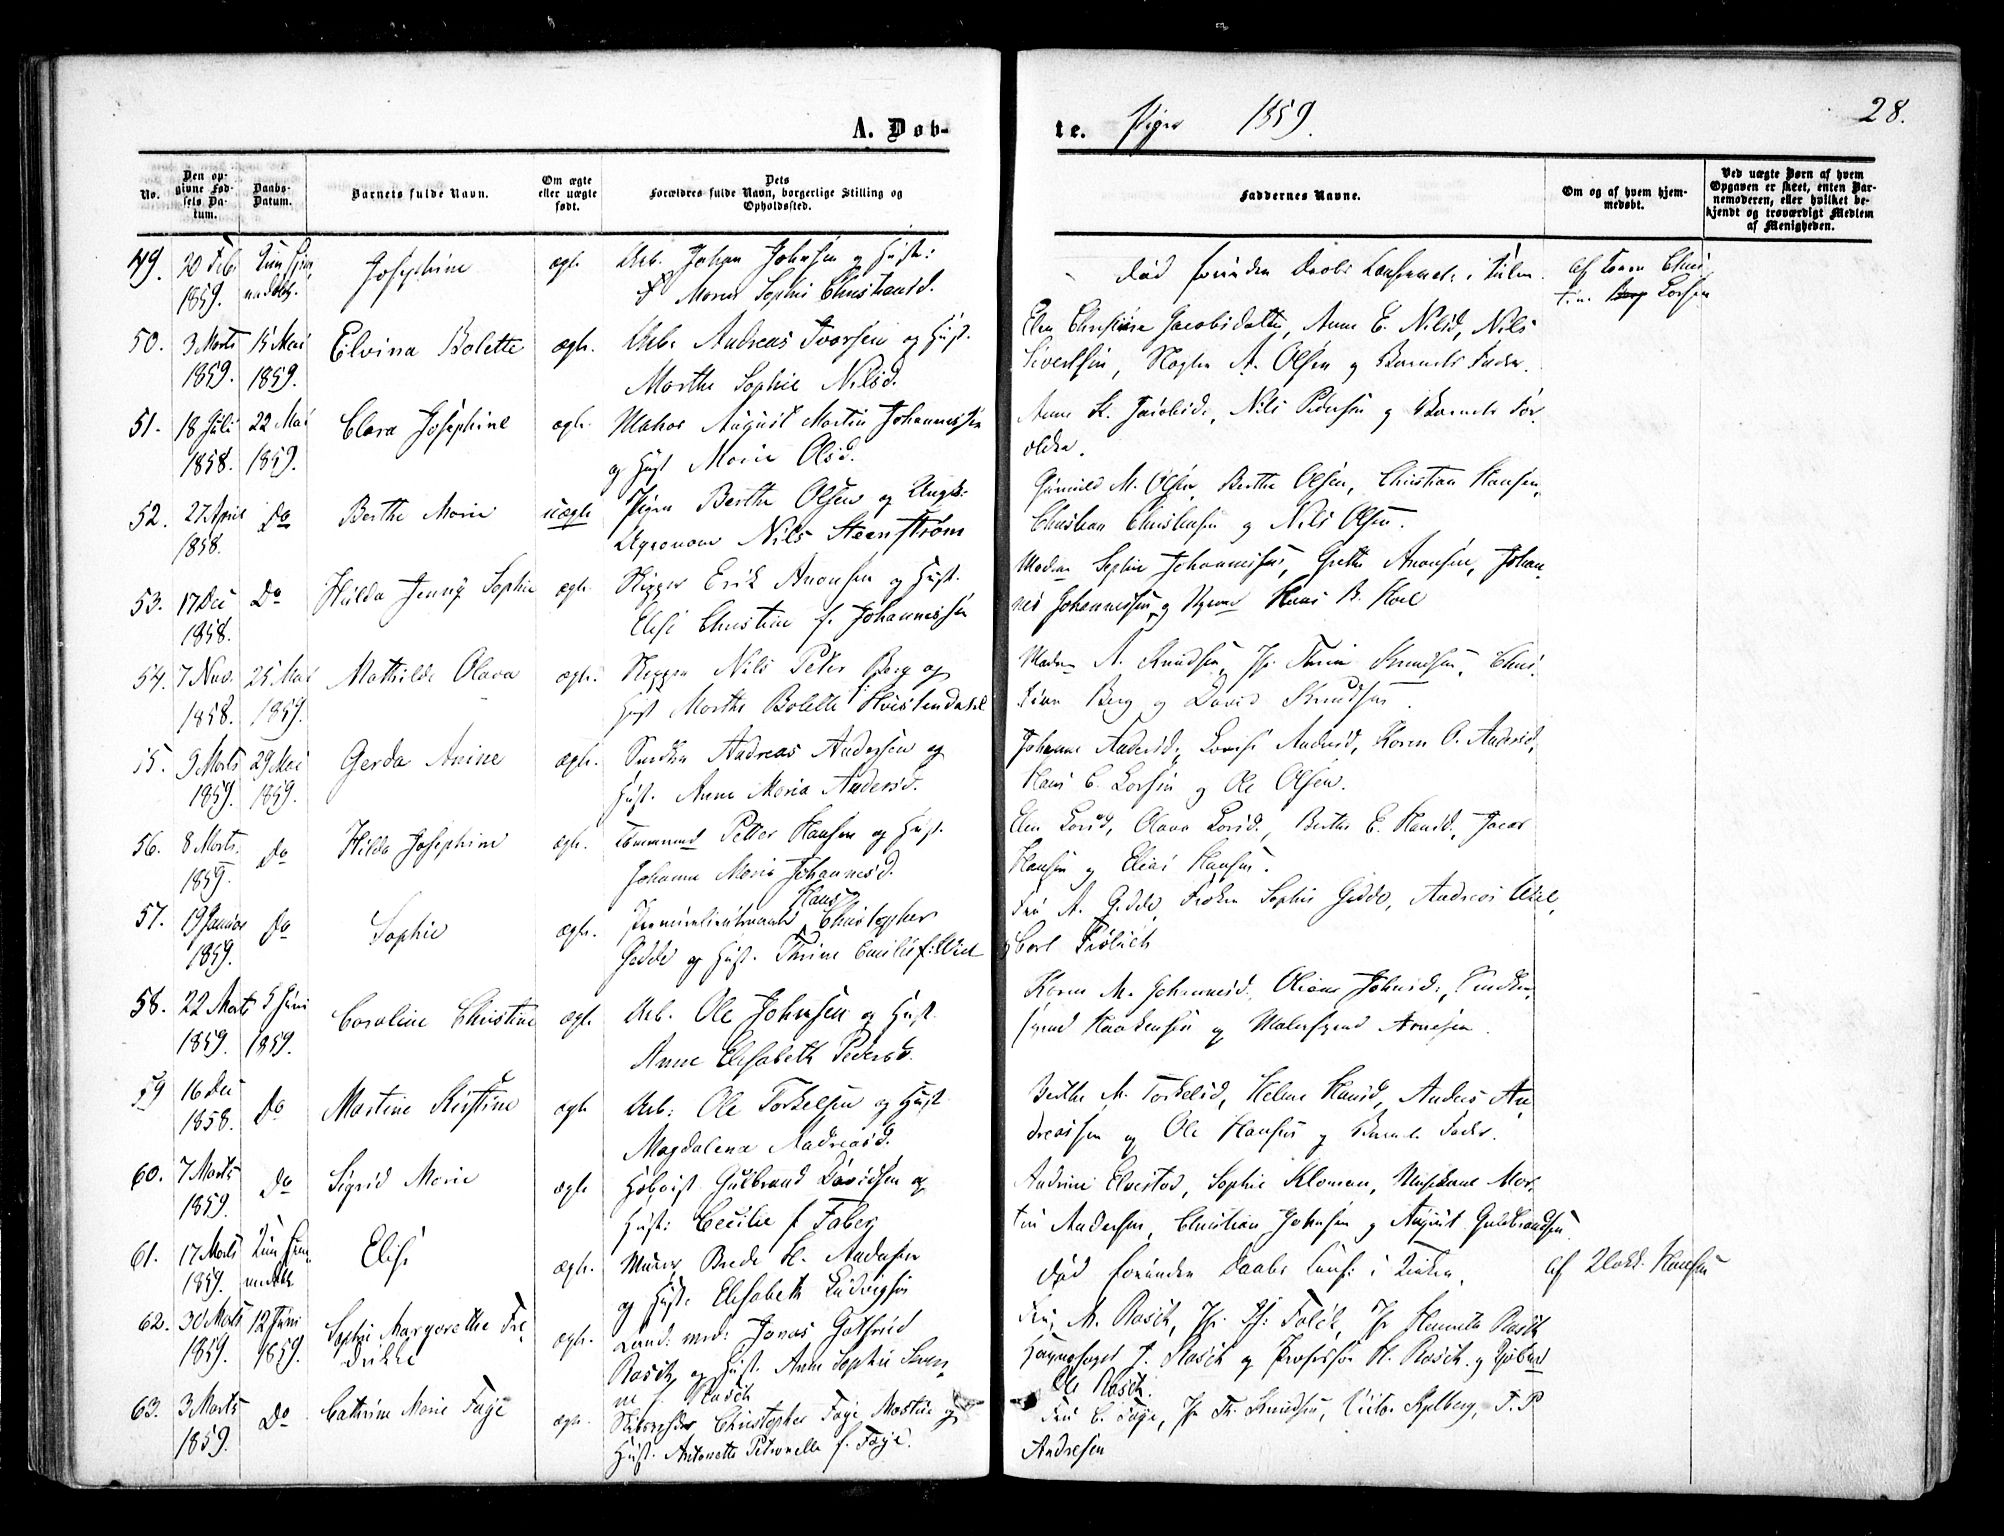 A. Døb-
te. Piger 1859.
28.
No.
Den op-
givne Fød-
sels Da-
tum.
Daabs-
Datum.
Barnets fulde Navn.
Om ægte
eller uægte
født.
Dets
Forældres fulde Navn, borgerlige Stilling og
Opholdssted.
Faddernes Navne.
Om og af hvem hjem-
medøbt.
Ved uægte Børn af hvem
Opgaven er skeet, enten Bar-
nemoderen, eller hvilket be-
kjendt og troværdigt Medlem
af Menigheden.
49. 20 Feb. Josephine ægte Arb. Johan Johnsen og Hust:
1859. Maren Sophie Christiansd.
død forinden Daabs
af
Larsen
50. 3 Marts 15 Mai Elvina Bolette ægte. Arb. Andreas Ivarsen og Hust.
1859. 1859. Marthe Sophie Nilsd.
Elen Christine Jacobsdatter, Anne E. Nilsd, Nils
Sivertsen, A. Olsen og Barnets Fader.
51. 18 Juli 22 Mai Clara Josephine ægte. August Martin Johannessen
1858. 1859. og Hust Marie Olsd.
Anne K. Jacobsd, Nils Pedersen og Barnets For-
ældre.
52. 27 April Do Berthe Marie uægte Pigen Berthe Olsen og Ungk:
1858. Agronom Nils Steenstrøm
Gunnild M. Olsen, Berthe Olsen, Christian Hansen,
Christian Christensen og Nils Olsen.
53. 17 Dec Do Hilda Jenny Sophie ægte. Skipper Erik Anonsen og Hust.
1858. Elise Christine f. Johannessen
Madm Sophie Johannessen, Grethe Anonsen, Johan-
nes Johannessen, og Hans B. Hoel
54. 7 Nov. 25 Mai Mathilde Olava ægte. Skipper Nils Peter Berg og
1858. 1859. Hust Marthe Bolette
Madm A. Knudsen, Jfr Thrine Knudsen, Chris-
tian Berg og David Knudsen.
55. 9 Marts 29 Mai Gerda Anine ægte. Snedker Andreas Andersen og
1859. 1859. Hust. Anne Maria Andersd.
Johanne Andersd, Lovise Andersd, Karen O. Andersd,
Hans C. Larsen og Ole Olsen.
56. 8 Marts. Do Hilda Josephine ægte. Petter Hansen og Hust.
1859. Johanne Marie Johannesd.
Elen Larsd, Olava Larsd., Berthe E. Hansd, Jacob
Hansen og Elias Hansen.
57. 19 Januar Do Sophie ægte. Premierlieutnant Hans Christopher
1859. Gedde og Hust. Thrine Emilie f: Wiel
Fru A. Gedde, Frøken Sophie Gedde, Andreas Wiel,
Carl Frölich
58. 22 Marts 5 Juni Caroline Christine ægte Arb. Ole Johnsen og Hust
1859. 1859. Anne Elisabeth Pedersd.
Karen M. Johannesd., Oliane Johnsd., Snedker-
svend Haakensen og Malersvend Arnesen.
59 16 Dec Do Martine Kristine ægte Arb: Ole Torkelsen og Hust
1858. Magdalena Andreasd.
Berthe M. Torkelsd, Helene Hansd, Anders An-
dreassen og Ole Hansen og Barnets Fader.
60. 7 Marts Do Sigrid Marie ægte Hoboist Gulbrand Davidsen og
1859. Hust: Cecilie f Faber
Andrine Elvestad, Sophie Kloman, Musikant Mar-
tin Andersen, Christian Johnsen og August Guldbrandsen.
61. 17 Marts Elise ægte. Murer Brede H. Andersen
1859. og Hust. Elisabeth Ludvigsen
død forinden Daabs i Kirken.
af Hansen
62. 30 Marts 12 Juni Sophie Margarethe Fre- ægte. Cand. med: Jonas Gotfried
1859. 1859. drikke Rasch og Hust. Anne Sophie
f. Rasch
Fru M. Rasch, Jfr. Folck, Jfr Henriette Rasch
J. Rasch og Professor H. Rasch og
Ole Rasch.
63. 3 Marts Do Cathrine Marie Faye ægte. Christopher Faye Martin og
1859. Hust. Antonette Petronelle f. Faye.
Fru C. Faye, Jfr Th. Knudsen, Victor Kylberg, T. P.
Andresen